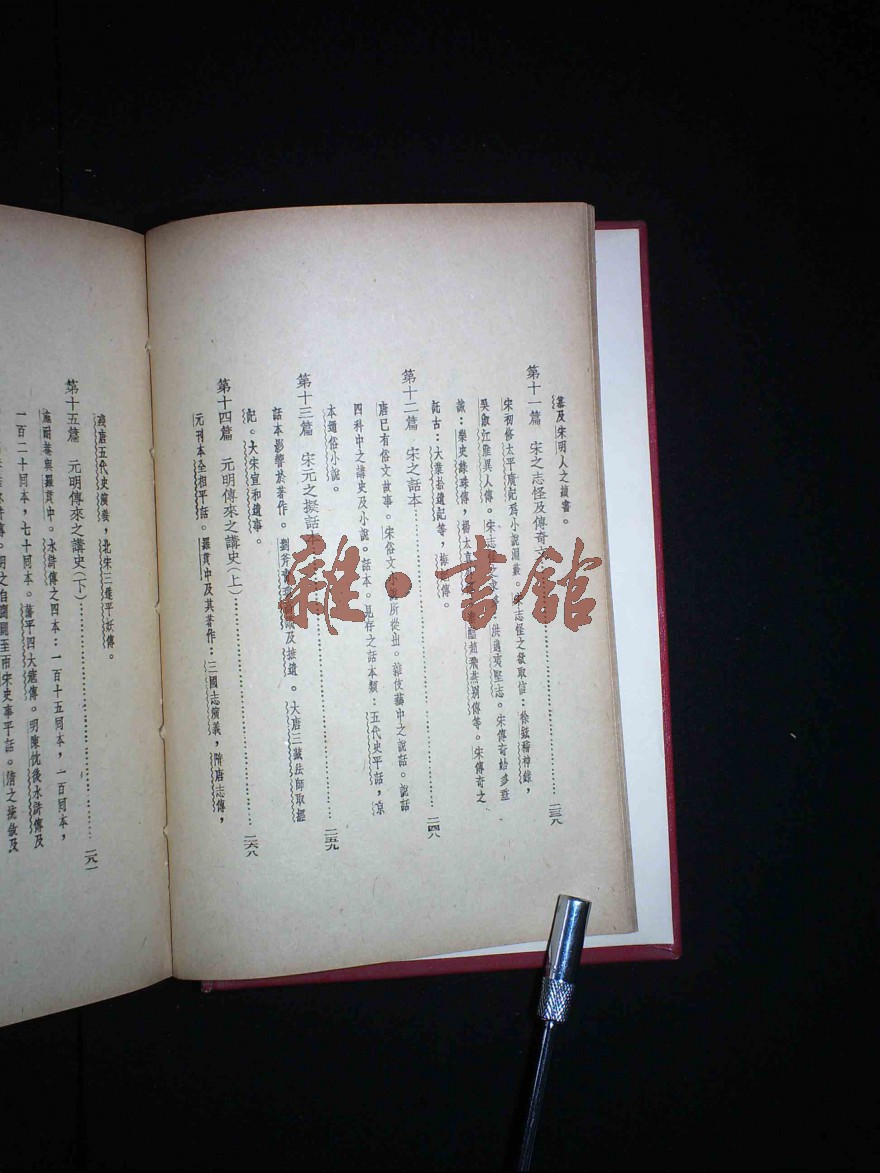 及宋明人之讀書。
第十一篇 宋之志怪及傳奇文……二三八
宋初修太平廣記爲小說淵藪。宋志怪之欲取信：徐鉉稽神錄，
吳淑江淮異人傳。宋志怪：洪邁夷堅志。宋傳奇始多垂
誡：樂史綠珠傳，楊太真 趙飛燕別傳等。宋傳奇之
託古：大業拾遺記等，梅妃傳。
第十二篇 宋之話本……二四八
唐已有俗文故事。宋俗文小說所從出。雜伎藝中之說話。說話
四科中之講史及小說。話本。見存之話本類：五代史平話，京
本通俗小說。
第十三篇 宋元之擬話本……二五九
話本影響於著作。劉斧青瑣高議及摭遺。大唐三藏法師取經
記。大宋宣和遺事。
第十四篇 元明傳來之講史（上）……二六八
元刊本全相平話。羅貫中及其著作：三國志演義，隋唐志傳，
殘唐五代史演義，北宋三遂平妖傳。
第十五篇 元明傳來之講史（下）……二八一
施耐菴與羅貫中。水滸傳之四本：一百十五回本，一百回本，
一百二十回本，七十回本。蕩平四大寇傳。明陳忱後水滸傳及
雜·書館